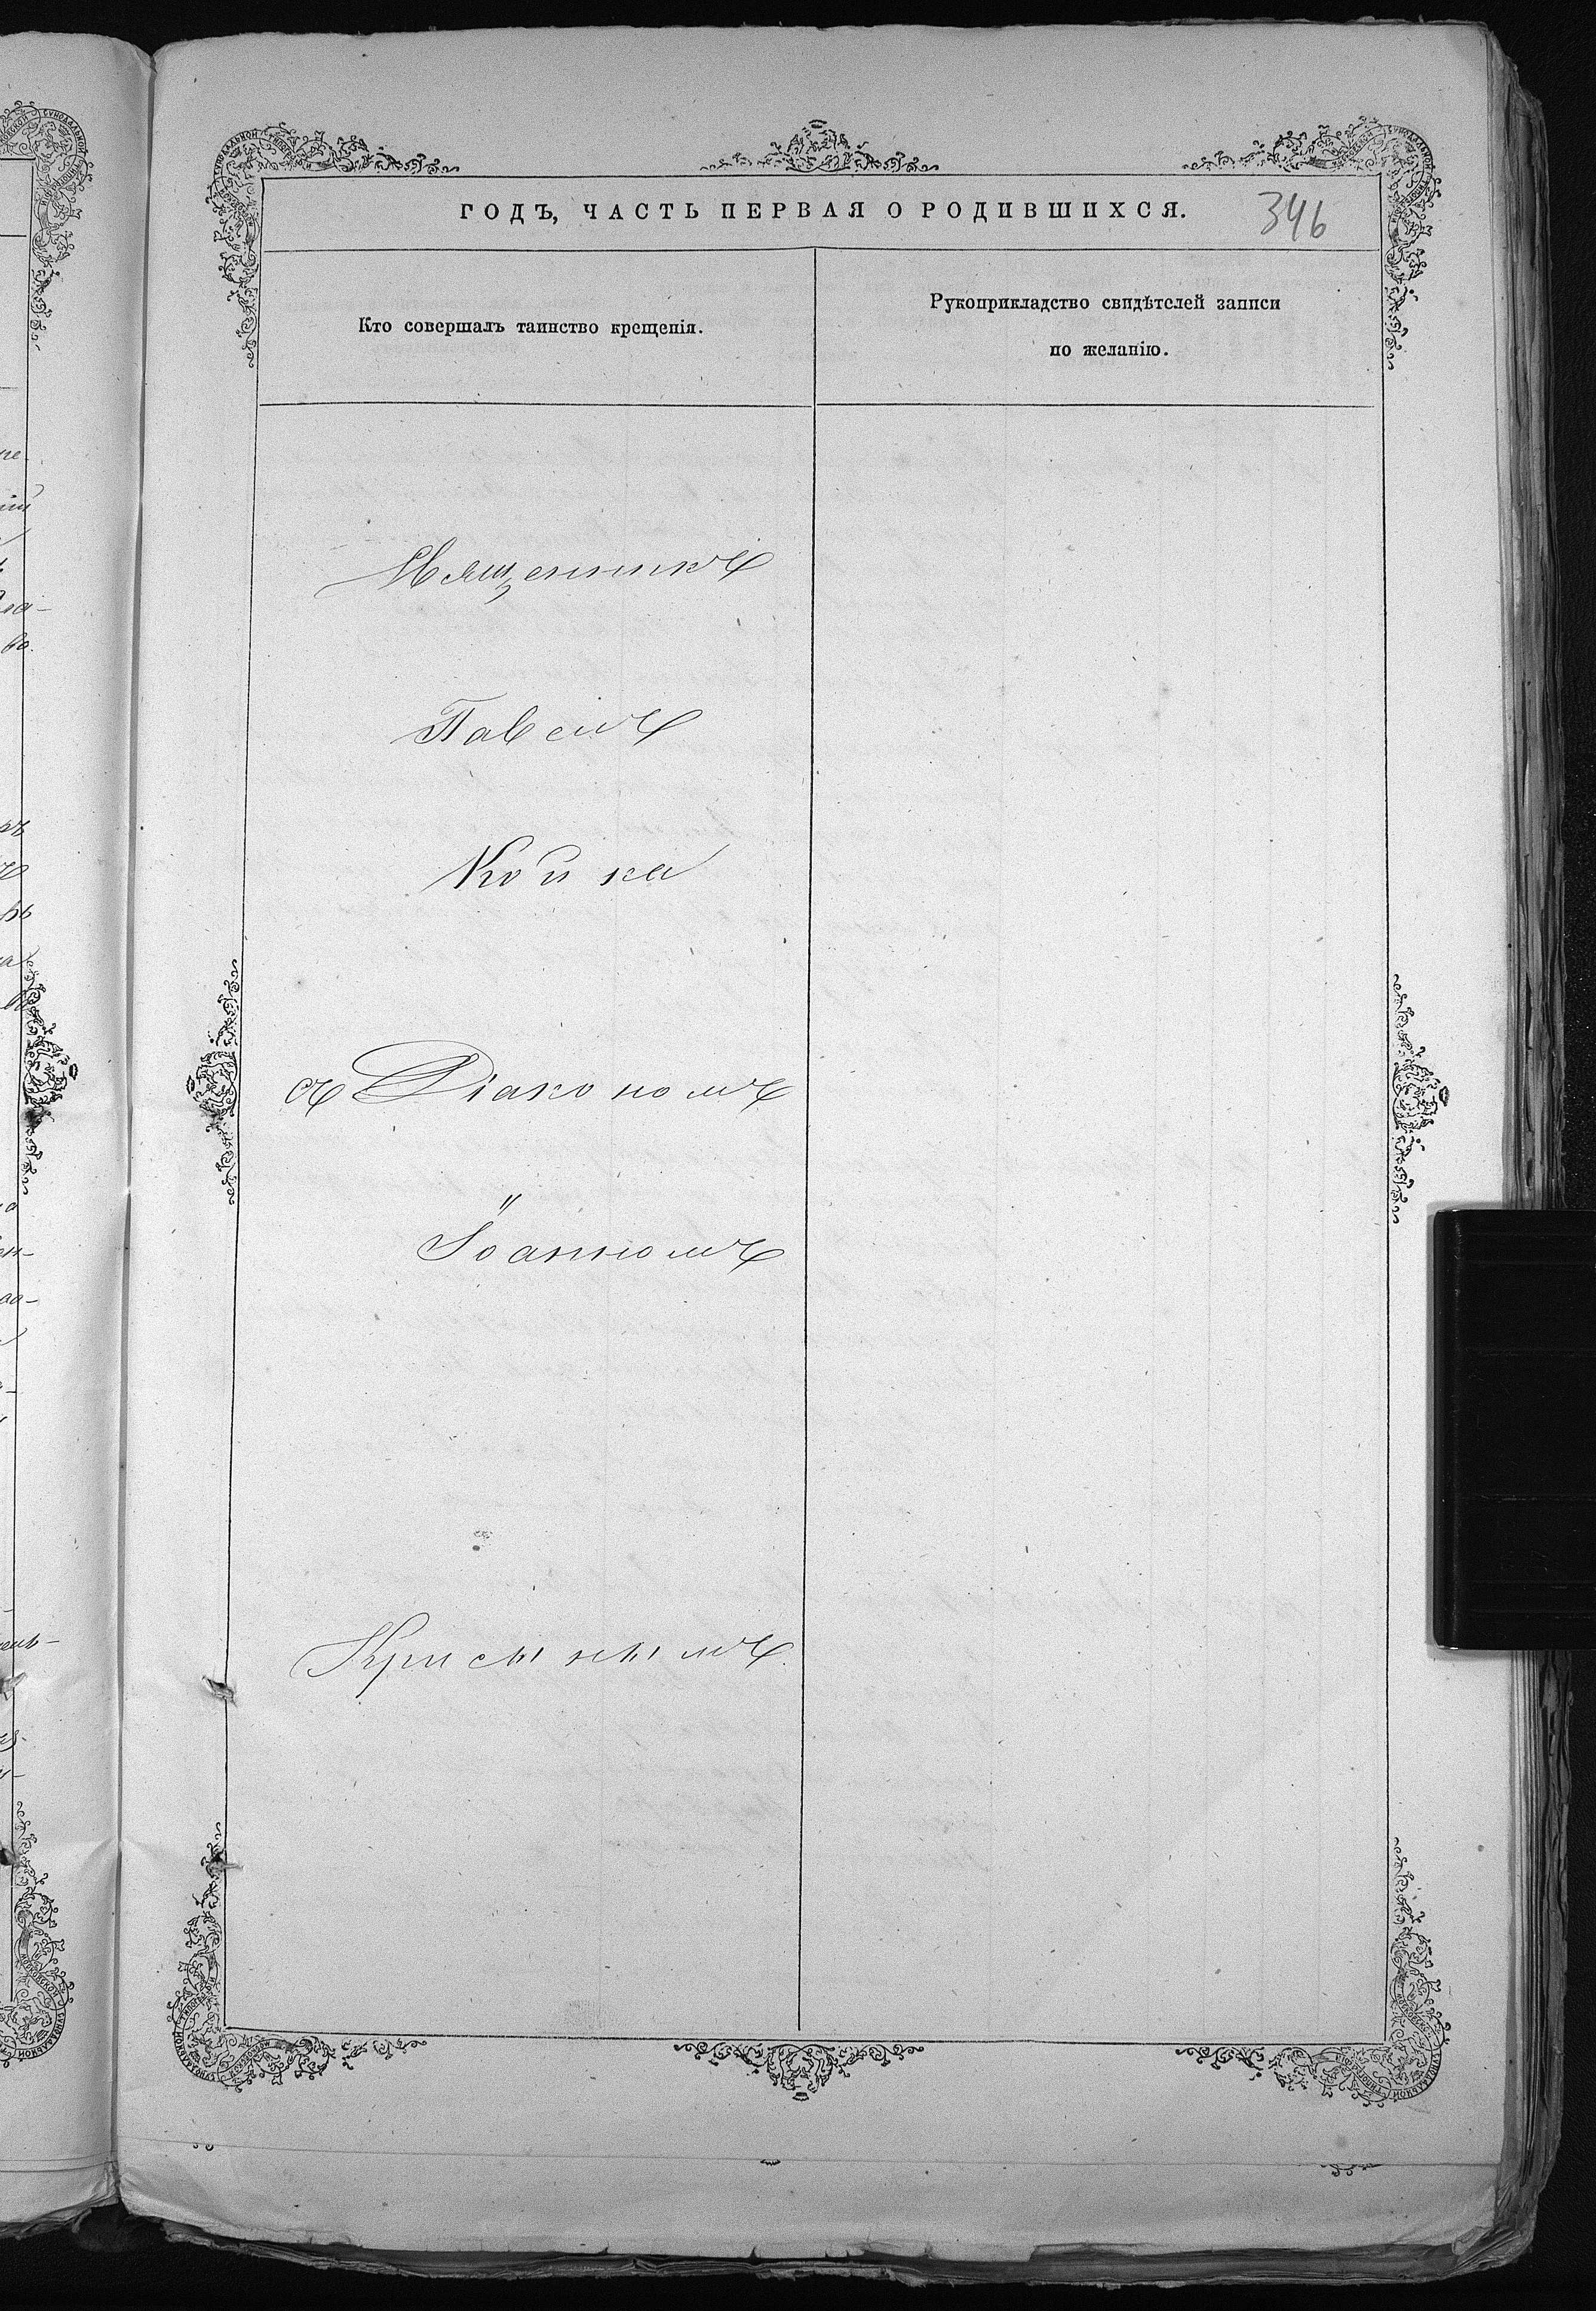 ГОДЪ, ЧАСТЬ ПЕРВАЯ О РОДИВШИХСЯ.
346
Кто совершалъ таинство крещенія.
Рукоприкладство свидѣтелей записи
по желанію.
Священникъ
Павелъ
Койка
съ Діакономъ
Іоанномъ